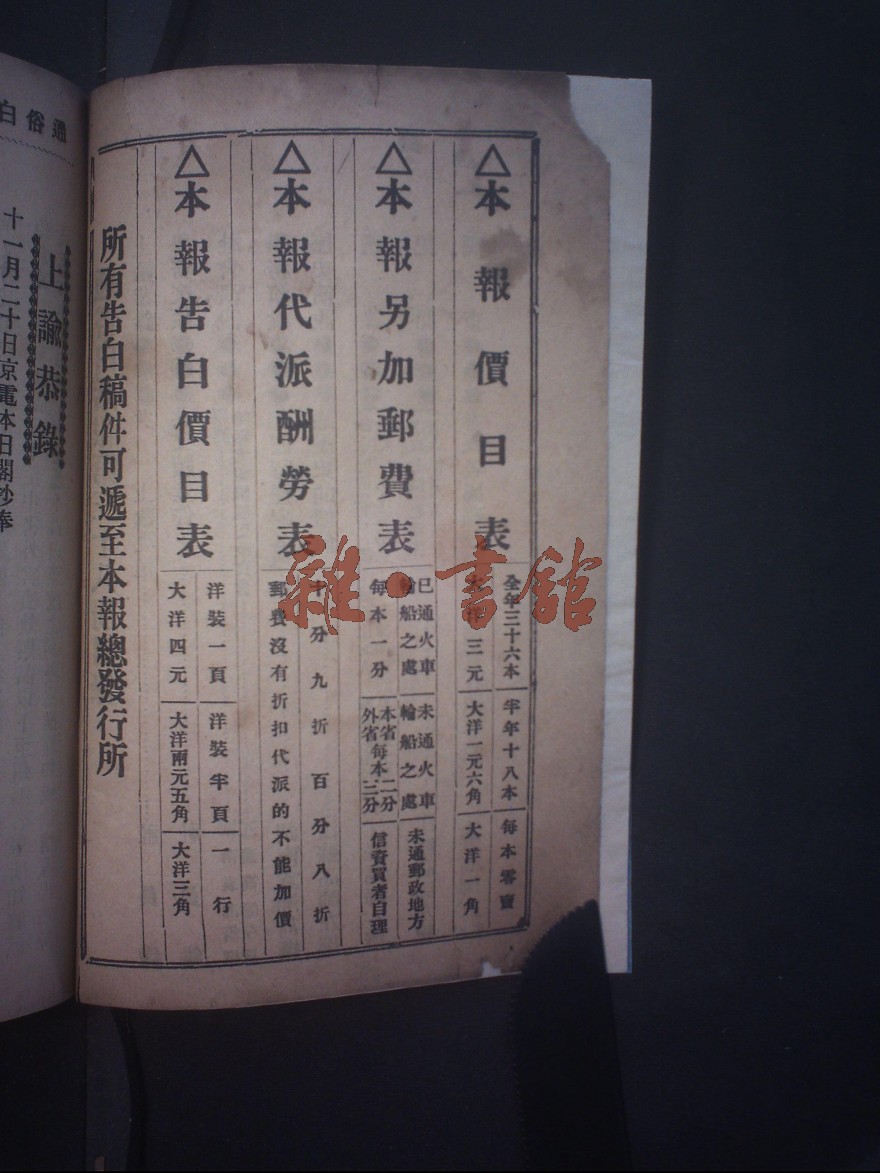 △本報價目表
全年三十六本 半年十八本 每本零賣
大洋三元 大洋一元六角 大洋一角
△本報另加郵費表
已通火車輪船之處 未通火車輪船之處 未通郵政地方
每本一分 本省每本二分 外省每本三分 信資買者自理
△本報代派酬勞表
十分九折百分八折
郵費沒有折扣代派的不能加價
△本報告白價目表
洋裝一頁 洋裝半頁 一行
大洋四元 大洋兩元五角 大洋三角
所有告白稿件可遞至本報總發行所
通俗白
上諭恭錄
十一月二十日京電本日閣抄奉
雜·書館